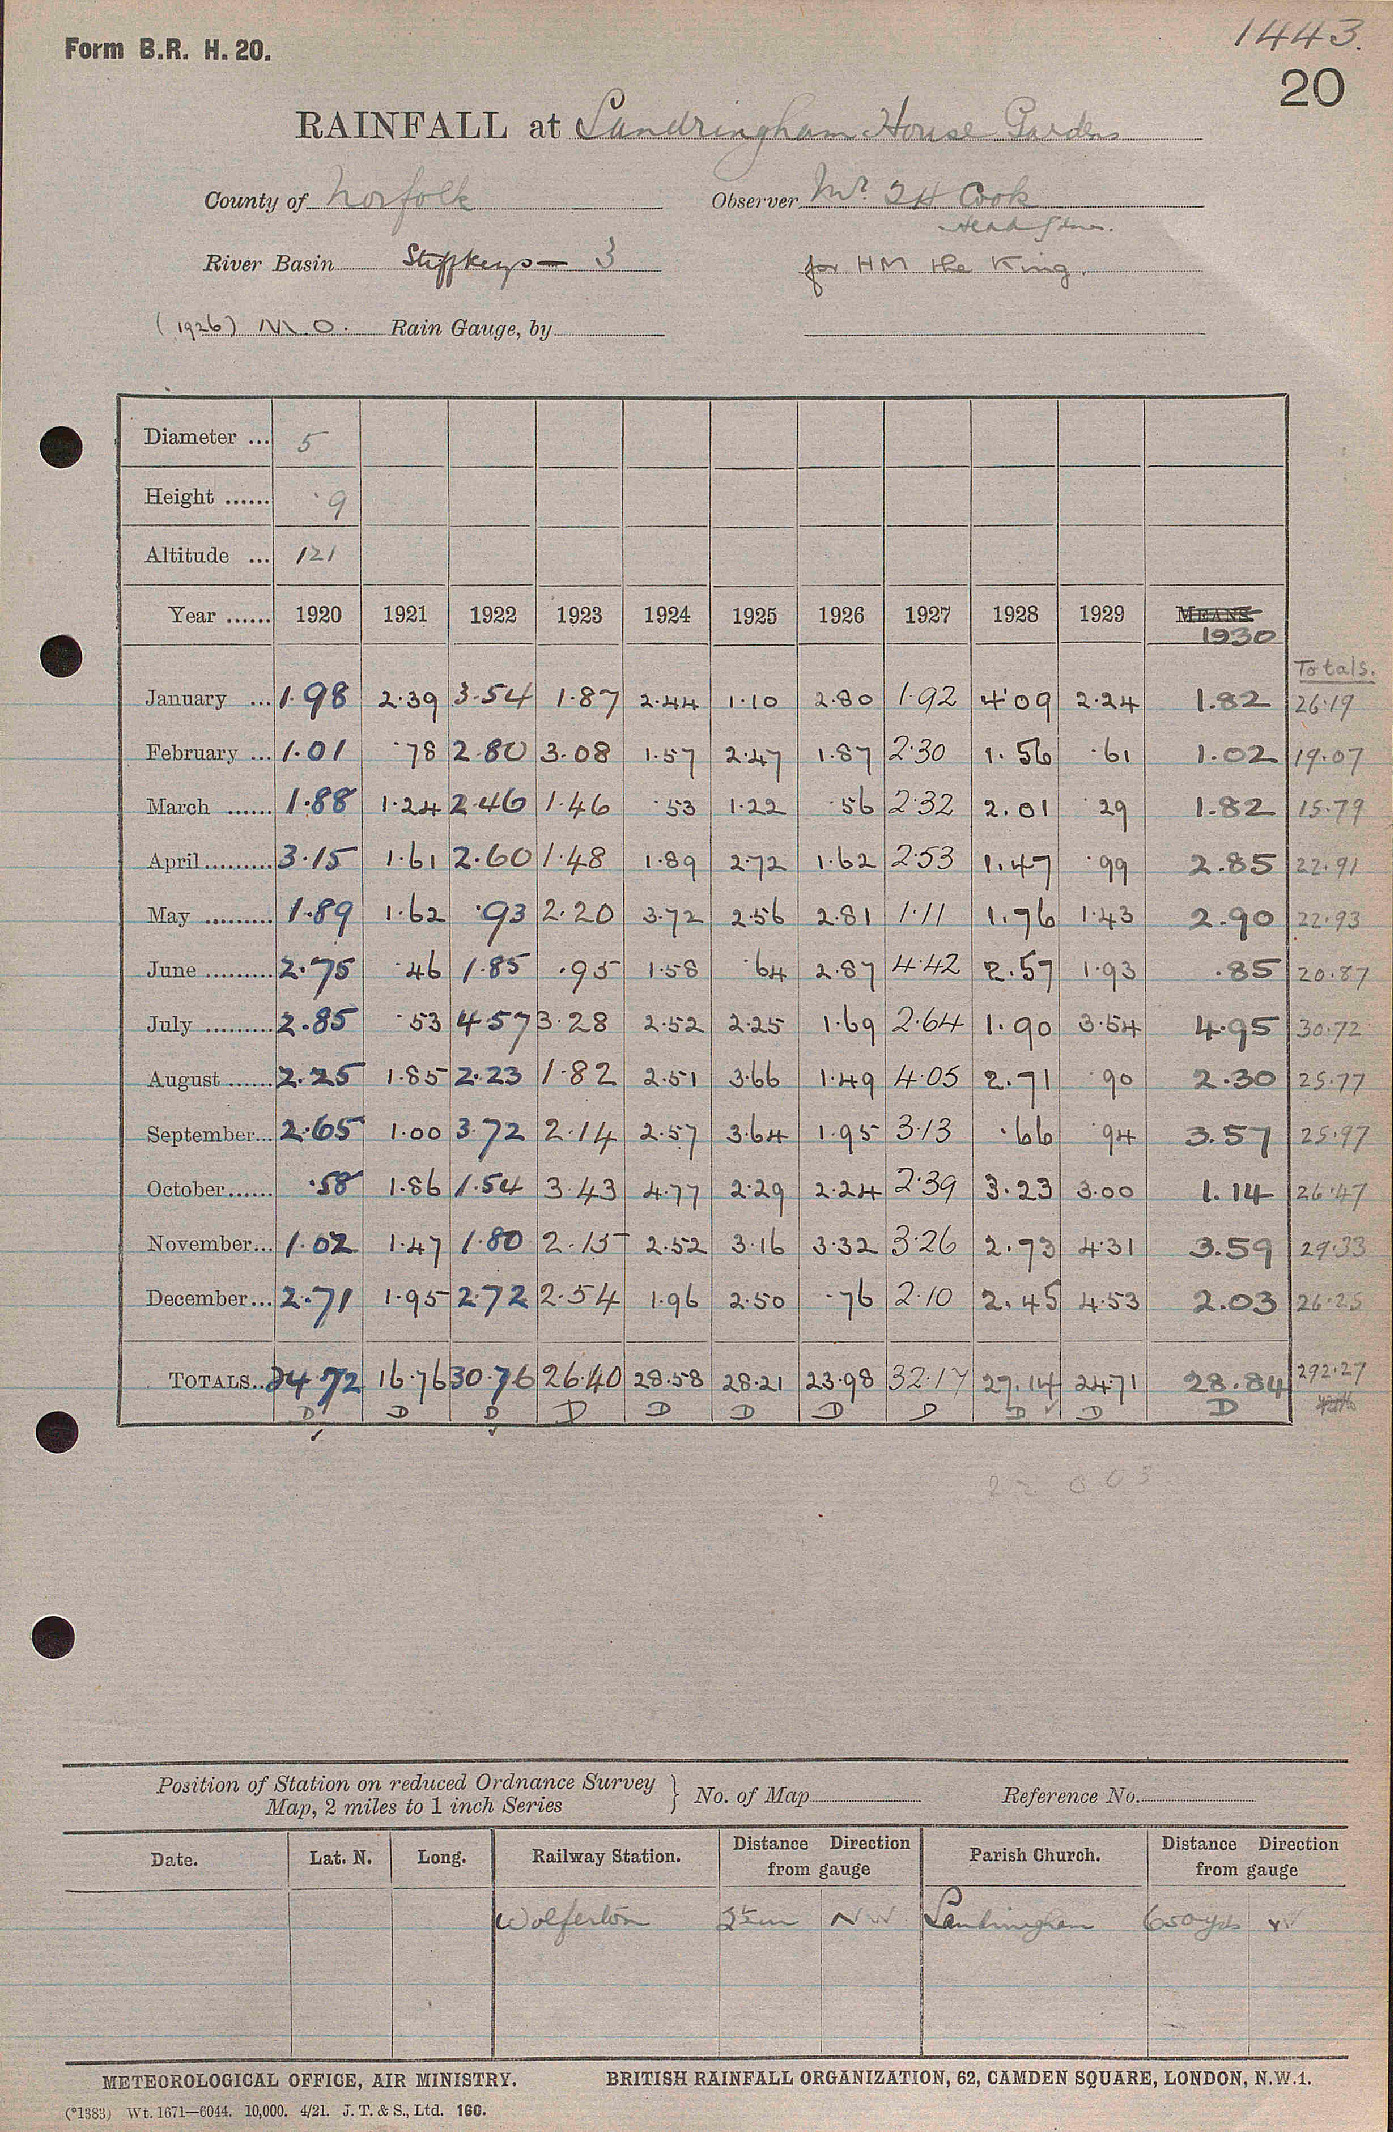 Form B.R. H. 20.
1443.
20
RAINFALL at Sandringham House Gardens
County of Norfolk Observer Mr. Cook
Head
River Basin Stiffkey — 3 for HM the King.
(1926) M.O. Rain Gauge, by
Diameter ... 5
Height ...... ·9
Altitude ... 121
Year ...... 1920 1921 1922 1923 1924 1925 1926 1927 1928 1929 MEANS
1930
Totals.
January ... 1.98 2.39 3.54 1.87 2.44 1.10 2.80 1.92 4.09 2.24 1.82 26.19
February ... 1.01 .78 2.80 3.08 1.57 2.47 1.87 2.30 1.56 .61 1.02 19.07
March ...... 1.88 1.24 2.46 1.46 .53 1.22 .56 2.32 2.01 .29 1.82 15.79
April ......... 3.15 1.61 2.60 1.48 1.89 2.72 1.62 2.53 1.47 .99 2.85 22.91
May ......... 1.89 1.62 .93 2.20 3.72 2.56 2.81 1.11 1.76 1.43 2.90 22.93
June ......... 2.75 .46 1.85 .95 1.58 .64 2.87 4.42 2.57 1.93 .85 20.87
July ......... 2.85 .53 4.57 3.28 2.52 2.25 1.69 2.64 1.90 3.54 4.95 30.72
August ...... 2.25 1.85 2.23 1.82 2.51 3.66 1.49 4.05 2.71 .90 2.30 25.77
September... 2.65 1.00 3.72 2.14 2.57 3.64 1.95 3.13 .66 .94 3.57 25.97
October...... .58 1.86 1.54 3.43 4.77 2.29 2.24 2.39 3.23 3.00 1.14 26.47
November... 1.02 1.47 1.80 2.15 2.52 3.16 3.32 3.26 2.73 4.31 3.59 29.33
December... 2.71 1.95 2.72 2.54 1.96 2.50 .76 2.10 2.45 4.53 2.03 26.25
TOTALS.. 24.72 16.76 30.76 26.40 28.58 28.21 23.98 32.17 27.14 24.71 28.84 292.27
D D D D D D D D D D D
Position of Station on reduced Ordnance Survey
Map, 2 miles to 1 inch Series } No. of Map Reference No.
Date. Lat. N. Long. Railway Station. Distance Direction from gauge Parish Church. Distance Direction from gauge
Wolferton NW Sandringham 650 yds W
METEOROLOGICAL OFFICE, AIR MINISTRY. BRITISH RAINFALL ORGANIZATION, 62, CAMDEN SQUARE, LONDON, N.W.1.
(*1383) Wt. 1671—6044. 10,000. 4/21. J. T. & S., Ltd. 160.